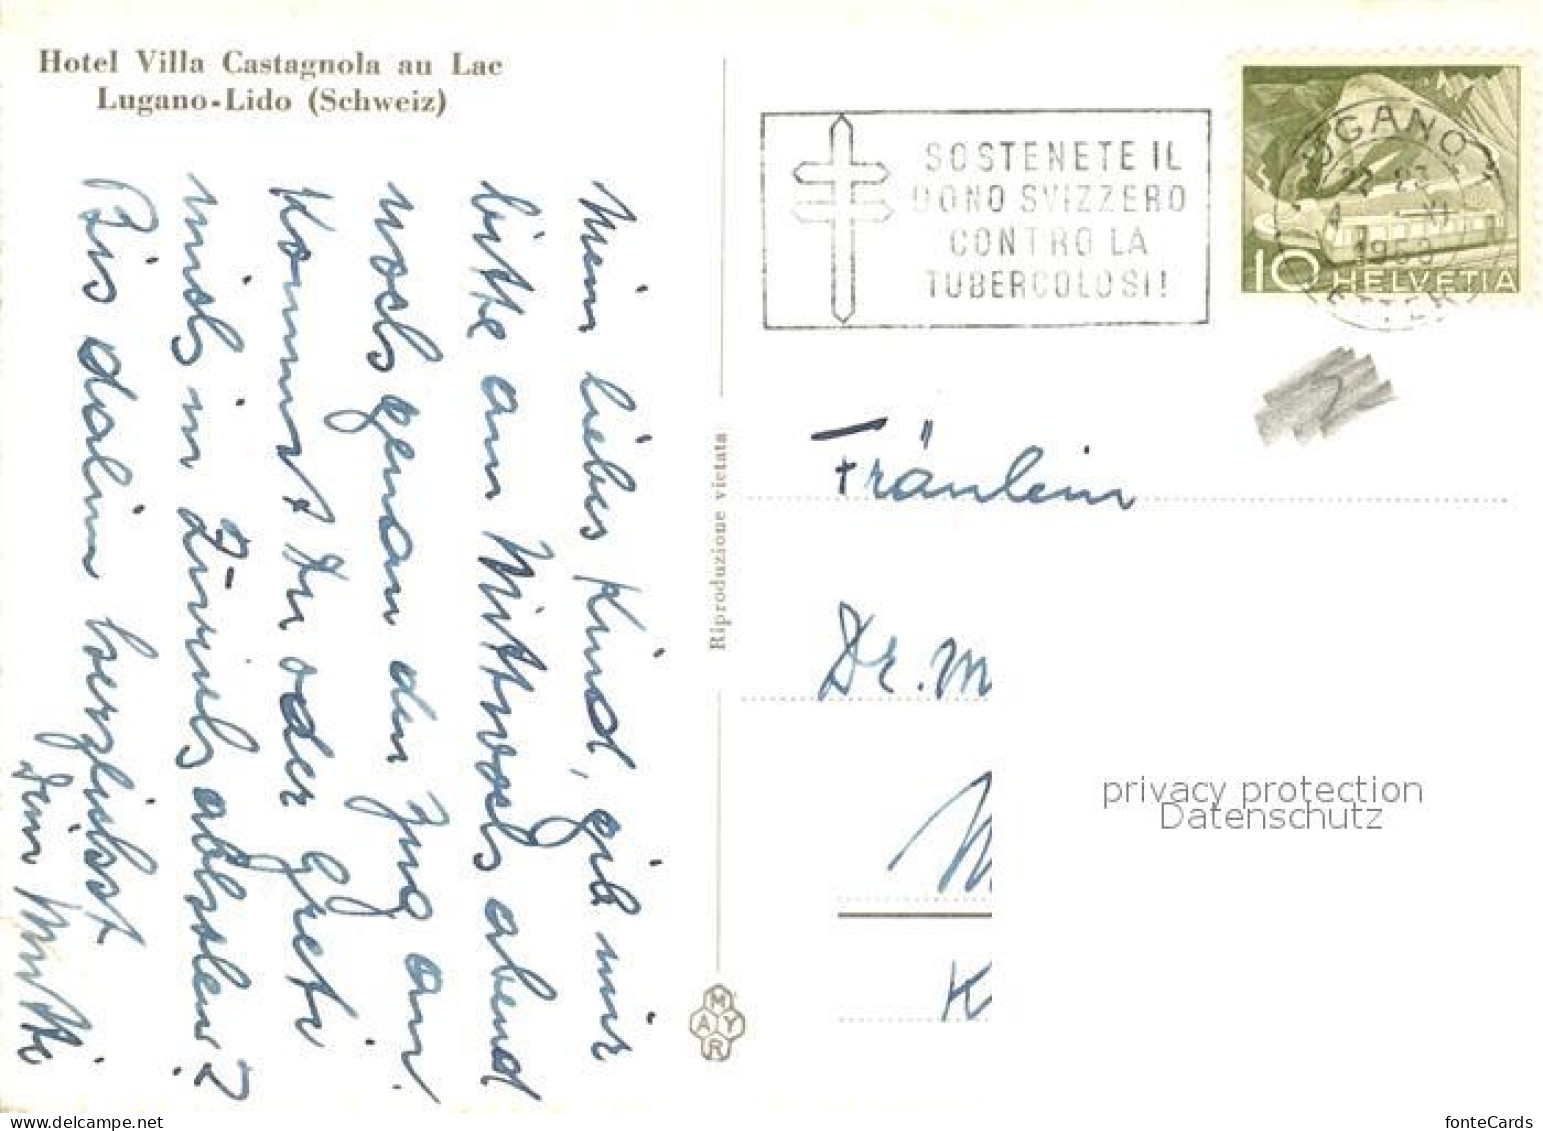 Hotel Villa Castagnola au Lac
Lugano-Lido (Schweiz)
Mein liebes Kind, gib mir
bitte am Mittwoch abend
noch genau den Zug an.
Kommst Du oder Greti
mich in Zürich abholen?
Bis dahin herzlichst
Dein Mutti
Riproduzione vietata
MAYR
SOSTENETE IL
DONO SVIZZERO
CONTRO LA
TUBERCOLOSI!
LUGANO 1
XI
10 HELVETIA
Fräulein
Dr. M
M
K
privacy protection
Datenschutz
delcampe.net
fonteCards